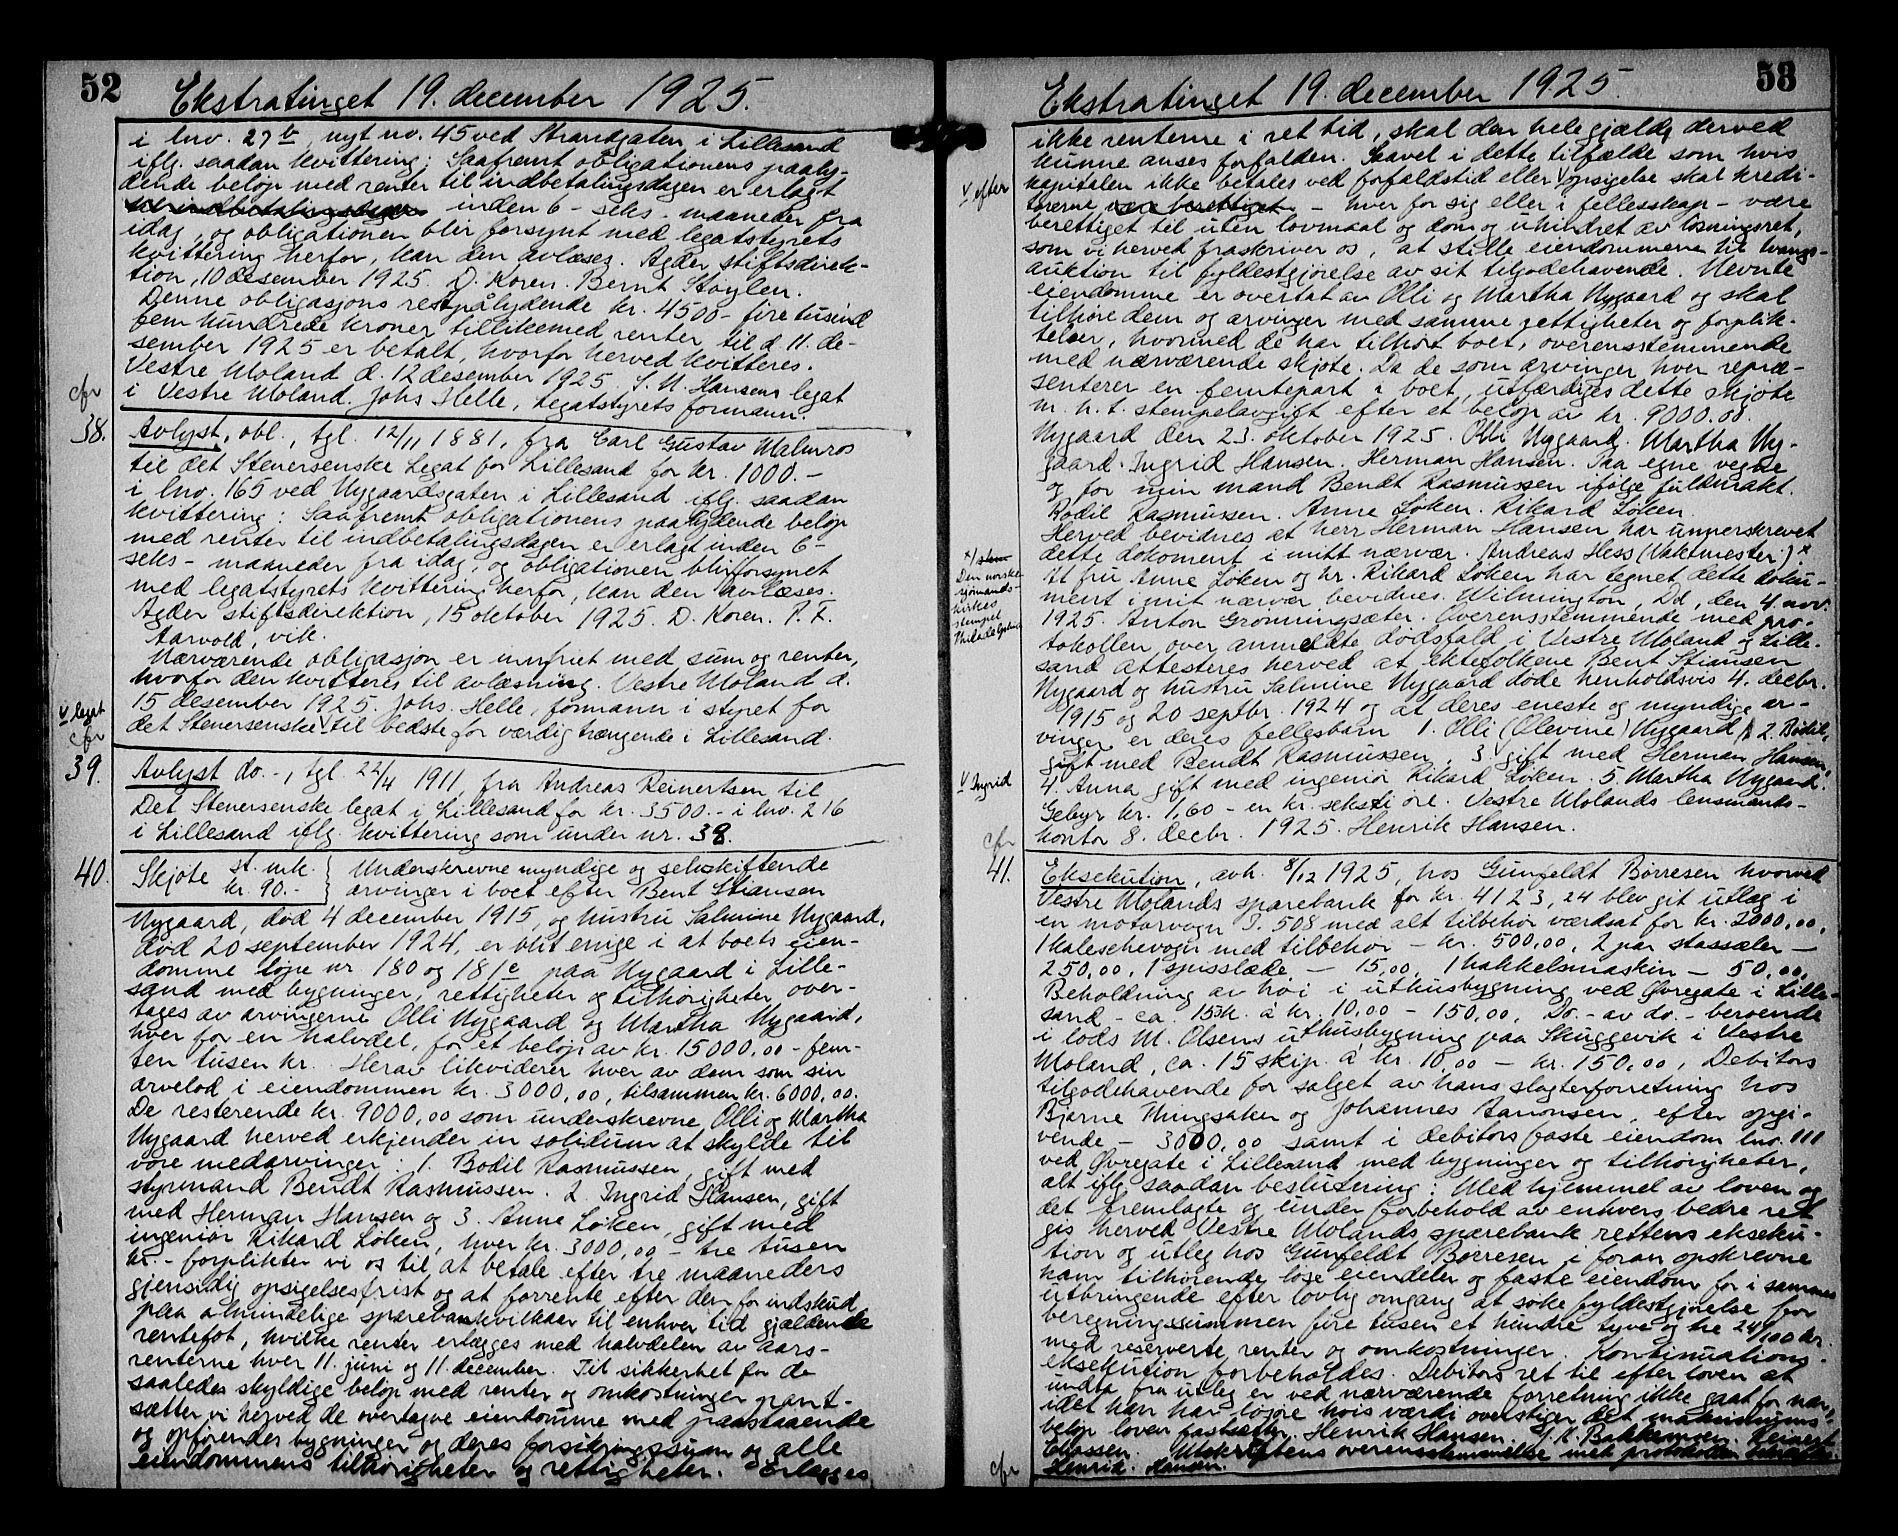 52
Ekstratinget 19. december 1925.
i lnv. 27b, nyt nv. 45 ved Strandgaten i Lillesand
iflg. saadan kvittering: Saafremt obligationens paaly-
dende beløp med renter til indbetalingsdagen er erlagt
til indbetalingsdagen inden 6 - seks - maaneder fra
idag, og obligationen blir forsynt med legatstyrets
kvittering herfor, kan den avlæses. Agder stiftsdirek-
tion, 10 desember 1925. D. Koren. Bernt Støylen.
Denne obligasjons restpålydende kr. 4500 - fire tusind
fem hundrede kroner tillikemed renter til d 11. de-
sember 1925 er betalt, hvorfor herved kvitteres.
Vestre Moland d. 12 desember 1925. S. N. Hansens legat
i Vestre Moland. Johs Helle, Legatstyrets formann.
cfr
38. Avlyst, obl., tgl. 12/11 1881, fra Carl Gustav Malmros
til det Stenersenske Legat for Lillesand for kr. 1000.-
i lnv. 165 ved Nygaardsgaten i Lillesand iflg. saadan
kvittering: Saafremt obligationens paalydende beløp
med renter til indbetalingsdagen er erlagt inden 6 -
seks - maaneder fra idag, og obligationen blir forsynet
med legatstyrets kvittering herfor, kan den avlæses.
Agder stiftsdirektion, 15 oktober 1925. D. Koren. P. F.
Aarvold, vik.
Nærværende obligasjon er innfriet med sum og renter,
hvorfor den kvitteres til avlæsning. Vestre Moland d.
15 desember 1925. Johs. Helle, formann i styret for
v legat
det Stenersenske v til bedste for værdig trængende i Lillesand.
cfr
39. Avlyst do. -, tgl. 22/4 1911, fra Andreas Reinertsen til
Det Stenersenske legat i Lillesand for kr. 3500.- i lnv. 216
i Lillesand iflg. kvittering som under nr. 38.
40. Skjøte st. mk. kr. 90.- } Underskrevne myndige og selvskiftende
arvinger i boet efter Bent Stiansen
Nygaard, død 4 december 1915, og hustru Salmine Nygaard,
død 20 september 1924, er blit enige i at boets eien-
domme løpe nr 180 og 181c paa Nygaard i Lille-
sand med bygninger, rettigheter og tilhørigheter over-
tages av arvingerne Olli Nygaard og Martha Nygaard,
hver for en halvdel, for et beløp av kr. 15000,00 - fem-
ten tusen kr. Herav likviderer hver av dem som sin
arvelod i eiendommen kr. 3000,00, tilsammen kr. 6000,00.
De resterende kr. 9000,00 som underskrevne Olli og Martha
Nygaard herved erkjender in solidum at skylde til
vore medarvinger: 1. Bodil Rasmussen, gift med
styrmand Bendt Rasmussen. 2. Ingrid Hansen, gift
med Herman Hansen og 3. Anne Løken, gift med
ingeniør Rikard Løken, hver kr. 3000,00 - tre tusen
kr. - forplikter vi os til at betale efter tre maaneders
gjensidig opsigelsesfrist og at forrente efter den for indskud
paa almindelige sparebankvilkaar til enhver tid gjældende
rentefot, hvilke renter erlægges med halvdelen av aars-
renterne hver 11. juni og 11. december. Til sikkerhet for de
saaledes skyldige beløp med renter og omkostninger pant-
sætter vi herved de overtagne eiendomme med paastaaende
og opførendes bygninger og deres forsikringssum og alle
eiendommens tilhørigheter og rettigheter. Erlægges
53
Ekstratinget 19. december 1925.
ikke renterne i ret tid, skal den hele gjæld derved
kunne anses forfalden. Saavel i dette tilfælde som hvis
v efter
kapitalen ikke betales ved forfaldstid eller v opsigelse skal kredi-
torerne være berettiget - hver for sig eller i fellesskap - være
berettiget til uten lovmaal og dom og uhindret av løsningsret,
som vi herved fraskriver os, at stille eiendommene til tvangs-
auktion til fyldestgjørelse av sit tilgodehavende. Nevnte
eiendomme er overtat av Olli og Martha Nygaard og skal
tilhøre dem og arvinger med samme rettigheter og forplik-
telser, hvormed de har tilhørt boet, overensstemmende
med nærværende skjøte. Da de som arvinger hver repræ-
senterer en femtepart i boet, utfærdiges dette skjøte
m. h. t. stempelavgift efter et beløp av kr. 9000.00.
Nygaard den 23. oktober 1925. Olli Nygaard. Martha Ny-
gaard. Ingrid Hansen. Herman Hansen. Paa egne vegne
og for min mand Bendt Rasmussen ifølge fuldmakt.
Bodil Rasmussen. Anne Løken. Rikard Løken.
Herved bevidnes at herr Herman Hansen har underskrevet
dette dokoment i mitt nærvær. Andreas Hess (Vaktmester) x
x/ stem
Den norske
sjømands-
kirkes
stempel
Philadelphia
At fru Anne Løken og hr. Rikard Løken har tegnet dette doku-
ment i mit nærvær bevidnes. Wilmington, Dd, den 4. nov.
1925. Anton Grønningsæter. Overensstemmende med pro-
tokollen over anmeldte dødsfald i Vestre Moland og Lille-
sand attesteres herved at ektefolkene Bent Stiansen
Nygaard og hustru Salmine Nygaard døde henholdsvis 4. decbr.
1915 og 20 septbr. 1924 og at deres eneste og myndige ar-
vinger er deres fellesbarn 1. Olli (Olevine) Nygaard, 2. Bodil,
gift med Bendt Rasmussen, 3 v gift med Herman Hansen,
v Ingrid
4. Anna gift med ingeniør Rikard Løken. 5 Martha Nygaard.
Gebyr kr. 1,60 - en kr. seksti øre. Vestre Molands lensmands-
kontor 8. decbr. 1925. Henrik Hansen.
cfr
41. Eksekution, avh. 8/12 1925, hos Gunfeldt Børresen hvorved
Vestre Molands sparebank for kr. 4123,24 blev git utlæg i
en motorvogn I. 508 med alt tilbehør værdsat for kr. 2000,00,
1 kaleschevogn med tilbehør - kr. 500,00, 2 par stasseler -
250,00, 1 spisslæde - 15,00, 1 hakkelsmaskin - 50,00,
Beholdning av høi i uthusbygning ved Øvregate i Lille-
sand - ca. 15 sk. à kr. 10,00 - 150,00, Do. - av do. - beroende
i lods M. Olsens uthusbygning paa Skuggevik i Vestre
Moland, ca. 15 skip. à kr. 10,00 - kr. 150,00, Debitors
tilgodehavende for salget av hans slagterforretning hos
Bjarne Thingsaker og Johannes Aaronsen, efter opgi-
vende - 3000,00 samt i debitors faste eiendom lnv. 111
ved Øvregate i Lillesand med bygninger og tilhørigheter,
alt iflg. saadan beslutning: Med hjemmel av loven og
det fremlagte og under forbehold av enhvers bedre ret
gis herved Vestre Molands sparebank rettens ekseku-
tion og utleg hos Gunfeldt Børresen i foran opskrevne
ham tilhørende løse eiendeler og faste eiendom for i sammes
utbringende efter lovlig omgang at søke fyldestgjørelse for
beregningssummen fire tusen et hundre tyve og tre 24/100 kr.
med reserverte renter og omkostninger. Kontinuations-
eksekution forbeholdes. Debitors ret til efter loven at
undta fra utleg er ved nærværende forretning ikke gaat for nær,
idet han har løsøre hvis værdi overstiger det maksimums
beløp loven fastsætter. Henrik Hansen. J. K. Bakkemoen. Reinert
Classen. Utskriftens overensstemmelse med protokollen bekræftes.
cfr
Henrik Hansen.